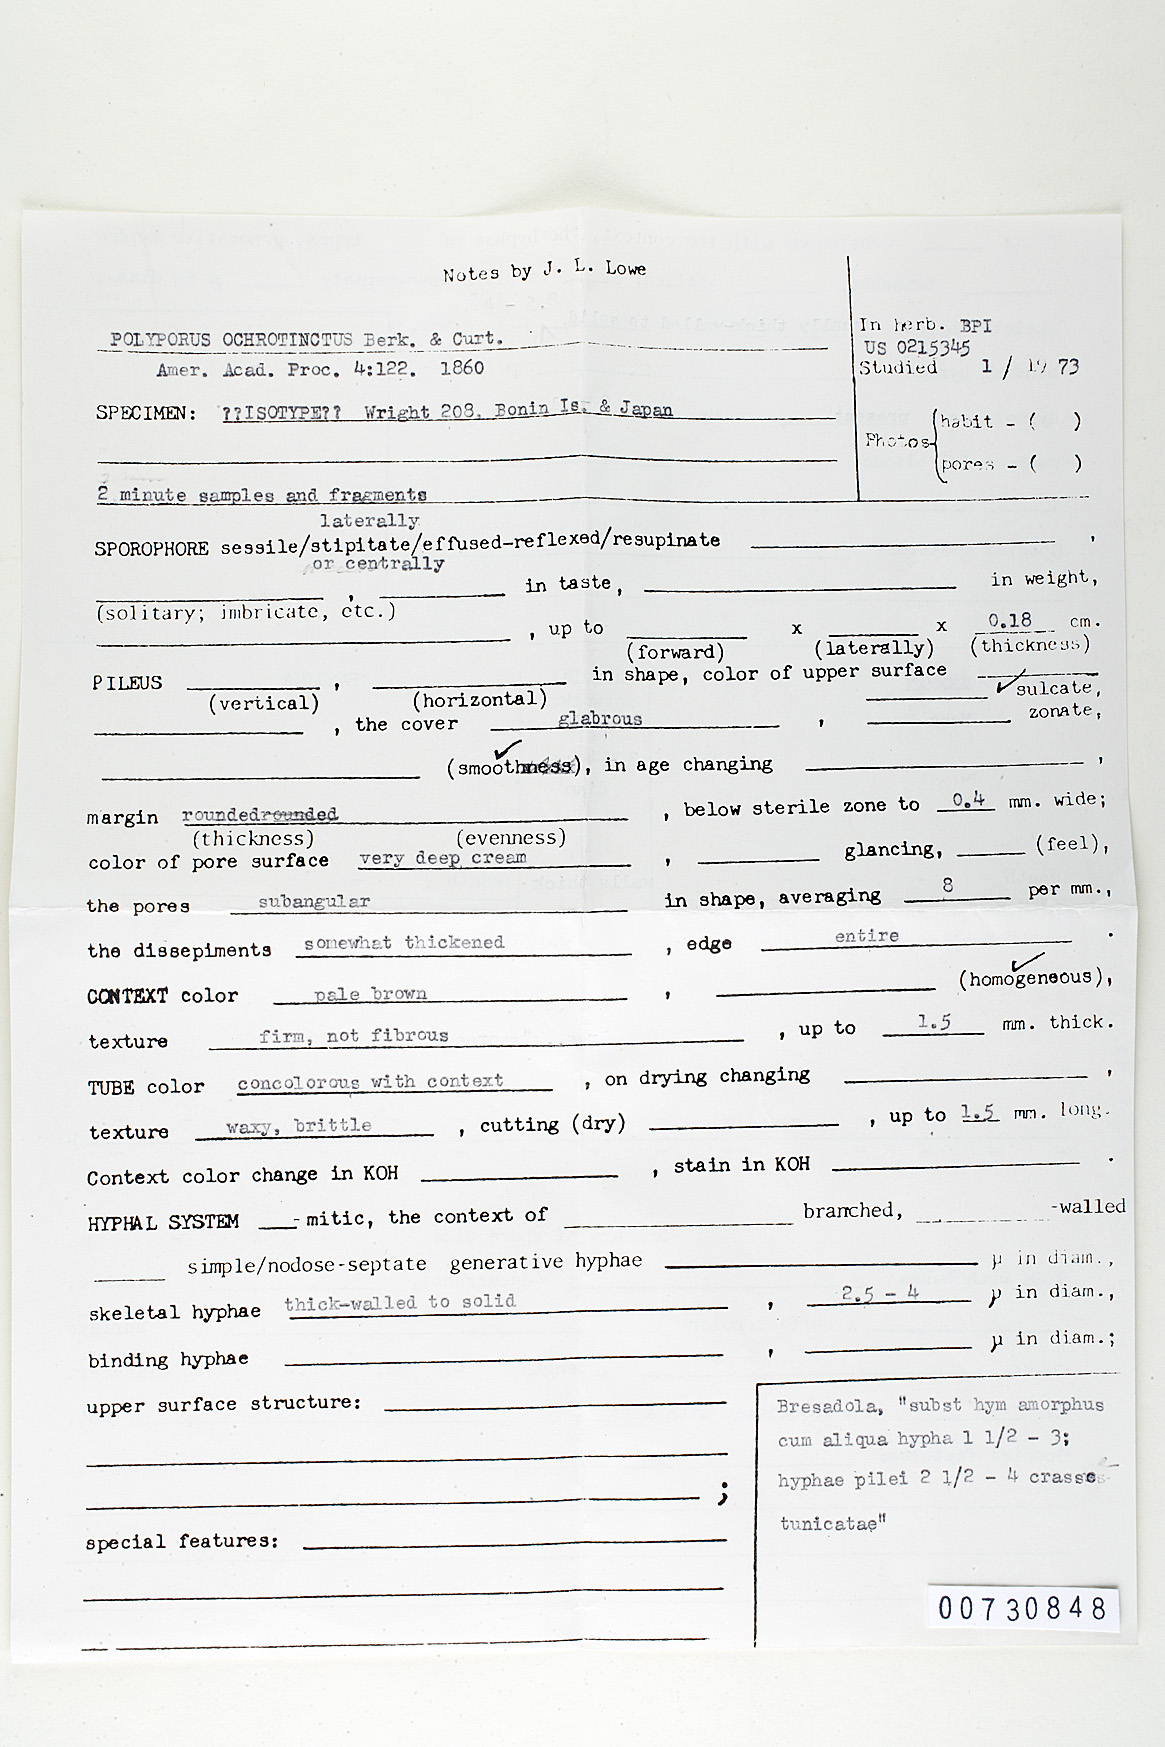 Notes by J. L. Lowe
POLYPORUS OCHROTINCTUS Berk. & Curt.
Amer. Acad. Proc. 4:122. 1860
In herb. BPI
US 0215345
Studied 1 / 19 73
SPECIMEN: ??ISOTYPE?? Wright 208, Bonin Is. & Japan
Photos
habit - ( )
pores - ( )
2 minute samples and fragments
laterally
SPOROPHORE sessile/stipitate/effused-reflexed/resupinate ,
or centrally
, in taste, in weight,
(solitary; imbricate, etc.)
, up to x x 0.18 cm.
(forward) (laterally) (thickness)
PILEUS , in shape, color of upper surface
(vertical) (horizontal) ✓ sulcate,
, the cover glabrous , zonate,
✓
(smoothness), in age changing ,
margin roundedrounded , below sterile zone to 0.4 mm. wide;
(thickness) (evenness)
color of pore surface very deep cream , glancing, (feel),
the pores subangular in shape, averaging 8 per mm.,
the dissepiments somewhat thickened , edge entire .
✓
CONTEXT color pale brown , (homogeneous),
texture firm, not fibrous , up to 1.5 mm. thick.
TUBE color concolorous with context , on drying changing ,
texture waxy, brittle , cutting (dry) , up to 1.5 mm. long.
Context color change in KOH , stain in KOH .
HYPHAL SYSTEM -mitic, the context of branched, -walled
simple/nodose-septate generative hyphae µ in diam.,
skeletal hyphae thick-walled to solid , 2.5 - 4 µ in diam.,
binding hyphae , µ in diam.;
upper surface structure:
;
special features:
Bresadola, "subst hym amorphus
cum aliqua hypha 1 1/2 - 3;
hyphae pilei 2 1/2 - 4 crasse
tunicatae"
00730848